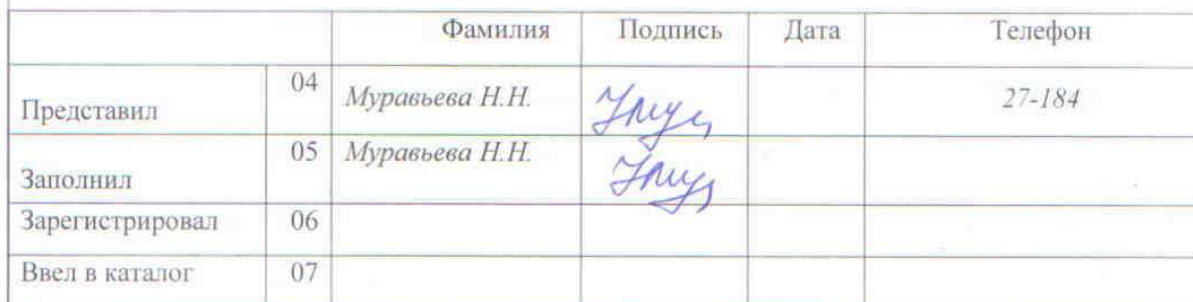 Фамилия Подпись Дата Телефон
Представил 04 Муравьева Н.Н. 27-184
Заполнил 05 Муравьева Н.Н.
Зарегистрировал 06
Ввел в каталог 07